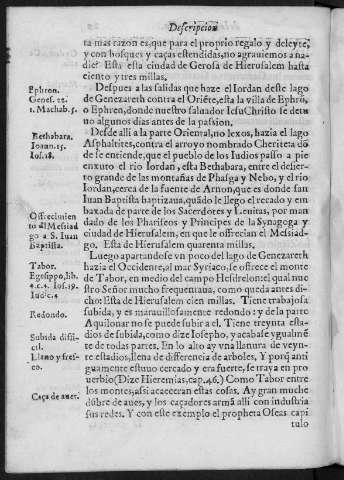 Descripcion
ta mas razon es, que para el proprio regalo y deleyte,
y con bosques y caças estendidas, no agrauiemos a na-
die? Esta esta ciudad de Gerosa de Hierusalem hasta
ciento y tres millas.
Despues a las salidas que haze el Iordan deste lago
de Genezareth contra el Oriẽte, esta la villa de Ephrõ,
o Ephren, donde nuestro saluador Iesu Christo se detu
uo algunos dias antes de la passion.
Ephron.
Genes. 22.
1. Machab. 5.
Desde alli a la parte Oriental, no lexos, hazia el lago
Asphaltites, contra el arroyo nombrado Cheriteta dõ
de se entiende, que el pueblo de los Iudios passo a pie
enxuto el rio Iordan, esta Bethabara, entre el desier-
to grande de las montañas de Phasga y Nebo, y el rio
Iordan, cerca de la fuente de Arnon, que es donde san
Iuan Baptista baptizaua, quãdo le llego el recado y em
baxada de parte de los Sacerdotes y Leuitas, por man
dado de los Phariseos y Principes de la Synagoga y
ciudad de Hierusalem, en que le offrecian el Messiad-
go. Esta de Hierusalem quarenta millas.
Bethabara.
Ioann. 15.
Ios. 18.
Offrecimien
to del Messiad
go a S. Iuan
Baptista.
Luego apartandose vn poco del lago de Genezareth
hazia el Occidente, al mar Syriaco, se offrece el monte
de Tabor, en medio del campo Hesdrelon: el qual nue
stro Señor mucho frequentaua, como queda antes di-
cho: Esta de Hierusalem cien millas. Tiene trabajosa
subida, y es marauillosamente redondo: y de la parte
Aquilonar no se puede subir a el. Tiene treynta esta-
dios de subida, como dize Iosepho, y acabase ygualmẽ
te de todas partes. En lo alto ay vna llanura de veyn-
te estadios, llena de differencia de arboles, Y porq̃ anti
guamente estuuo cercado y era fuerte, se traya en pro
uerbio (Dize Hieremias, cap. 46.) Como Tabor entre
los montes, assi acaeceran estas cosas. Ay gran muche
dũbre de aues, y los caçadores armã alli con industria
sus redes. Y con este exemplo el propheta Oseas capi
Tabor.
Egesippo, lib.
4. c. 1. Ios. 19.
Iudic. 4
Redondo.
Subida diffi-
cil.
Llano y fres-
co.
Caça de aues.
tulo